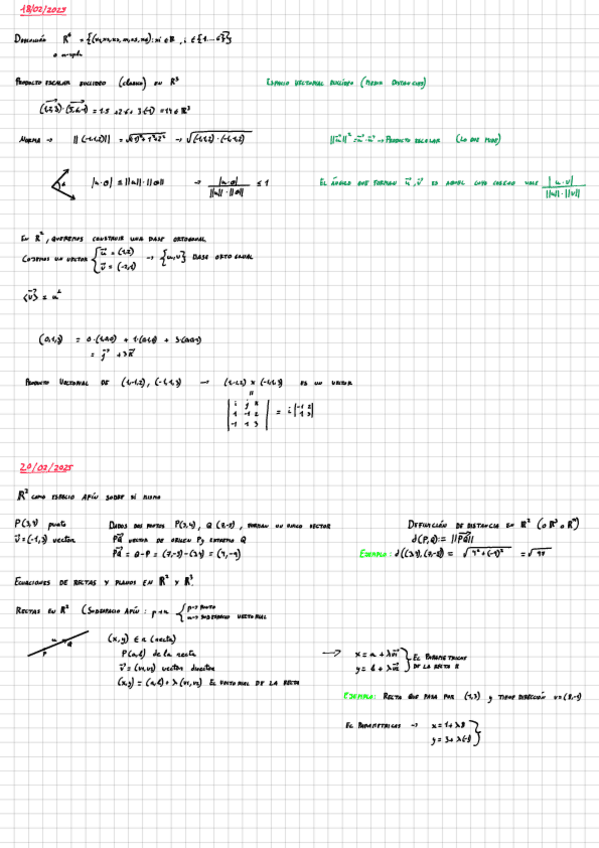 18/02/2025
PRODUCTO ESCALAR EUCLÍDEO (CLÁSICO) EN R³
ESPACIO VECTORIAL EUCLÍDEO (MEDIR DISTANCIAS)
NORMA → ||(-1,1,2)||
→ PRODUCTO ESCALAR (LO QUE MIDE)
|u·v| ≤ ||u||·||v|| → |u·v| / ||u||·||v|| ≤ 1
EL ÁNGULO QUE FORMAN u, v ES AQUEL CUYO COSENO VALE |u·v| / ||u||·||v||
EN R², QUEREMOS CONSTRUIR UNA BASE ORTOGONAL
COJEMOS UN VECTOR
→ {u,v} BASE ORTOGONAL
PRODUCTO VECTORIAL DE (1,-1,2), (-1,1,3) → (1,-1,2) x (-1,1,3) ES UN VECTOR
"
i j k
1 -1 2
-1 1 3
= i |-1 2|
|1 3|
20/02/2025
R² COMO ESPACIO AFÍN SOBRE SÍ MISMO
PUNTO
VECTOR
DADOS DOS PUNTOS
FORMAN UN ÚNICO VECTOR
PQ VECTOR DE ORIGEN P y EXTREMO Q
DEFINICIÓN DE DISTANCIA EN R² (o R³ o Rⁿ)
d(P,Q) := ||PQ||
EJEMPLO:
ECUACIONES DE RECTAS Y PLANOS EN R² Y R³.
RECTAS EN R² (SUBESPACIO AFÍN: p+u
p → PUNTO
u → SUBESPACIO VECTORIAL
(x,y) ∈ r (recta)
P(a,b) de la recta
v = (v1,v2) vector director
(x,y) = (a,b) + λ(v1,v2) EC VECTORIAL DE LA RECTA
→ x = a + λv1
y = b + λv2
EC PARAMETRICAS
DE LA RECTA R
EJEMPLO: RECTA QUE PASA POR (1,3) Y TIENE DIRECCIÓN v=(8,-1)
EC PARAMETRICAS → x = 1 + λ8
y = 3 + λ(-1)